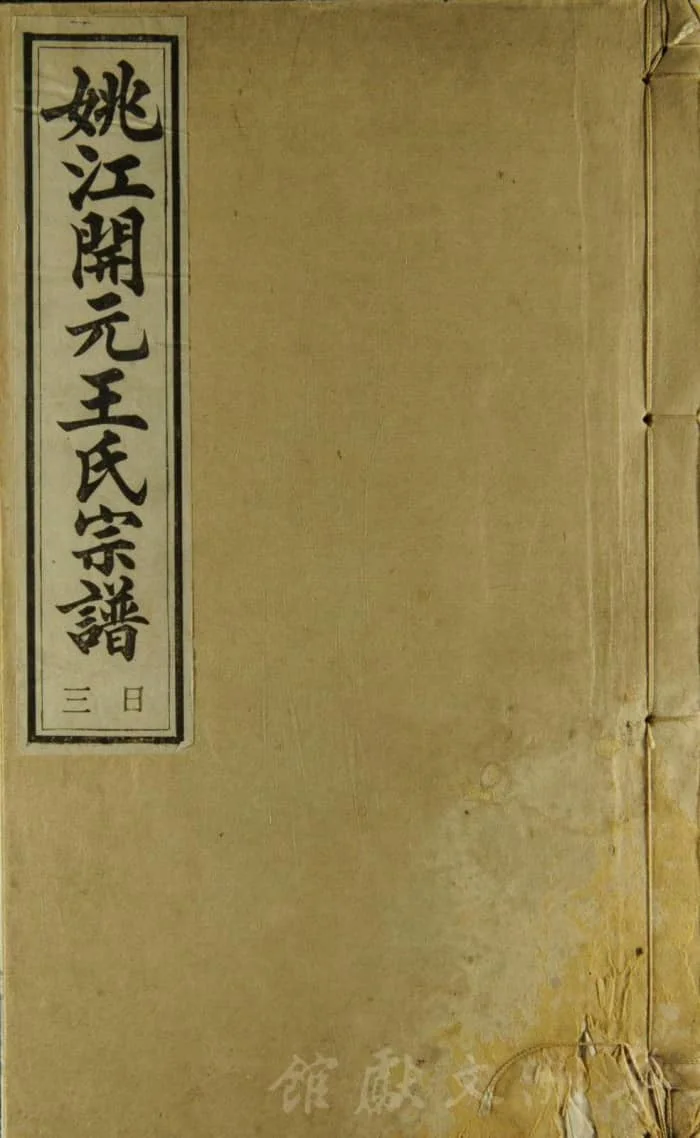 姚江開元王氏宗譜
日三
文獻館